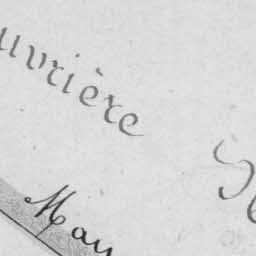 uvrière
May